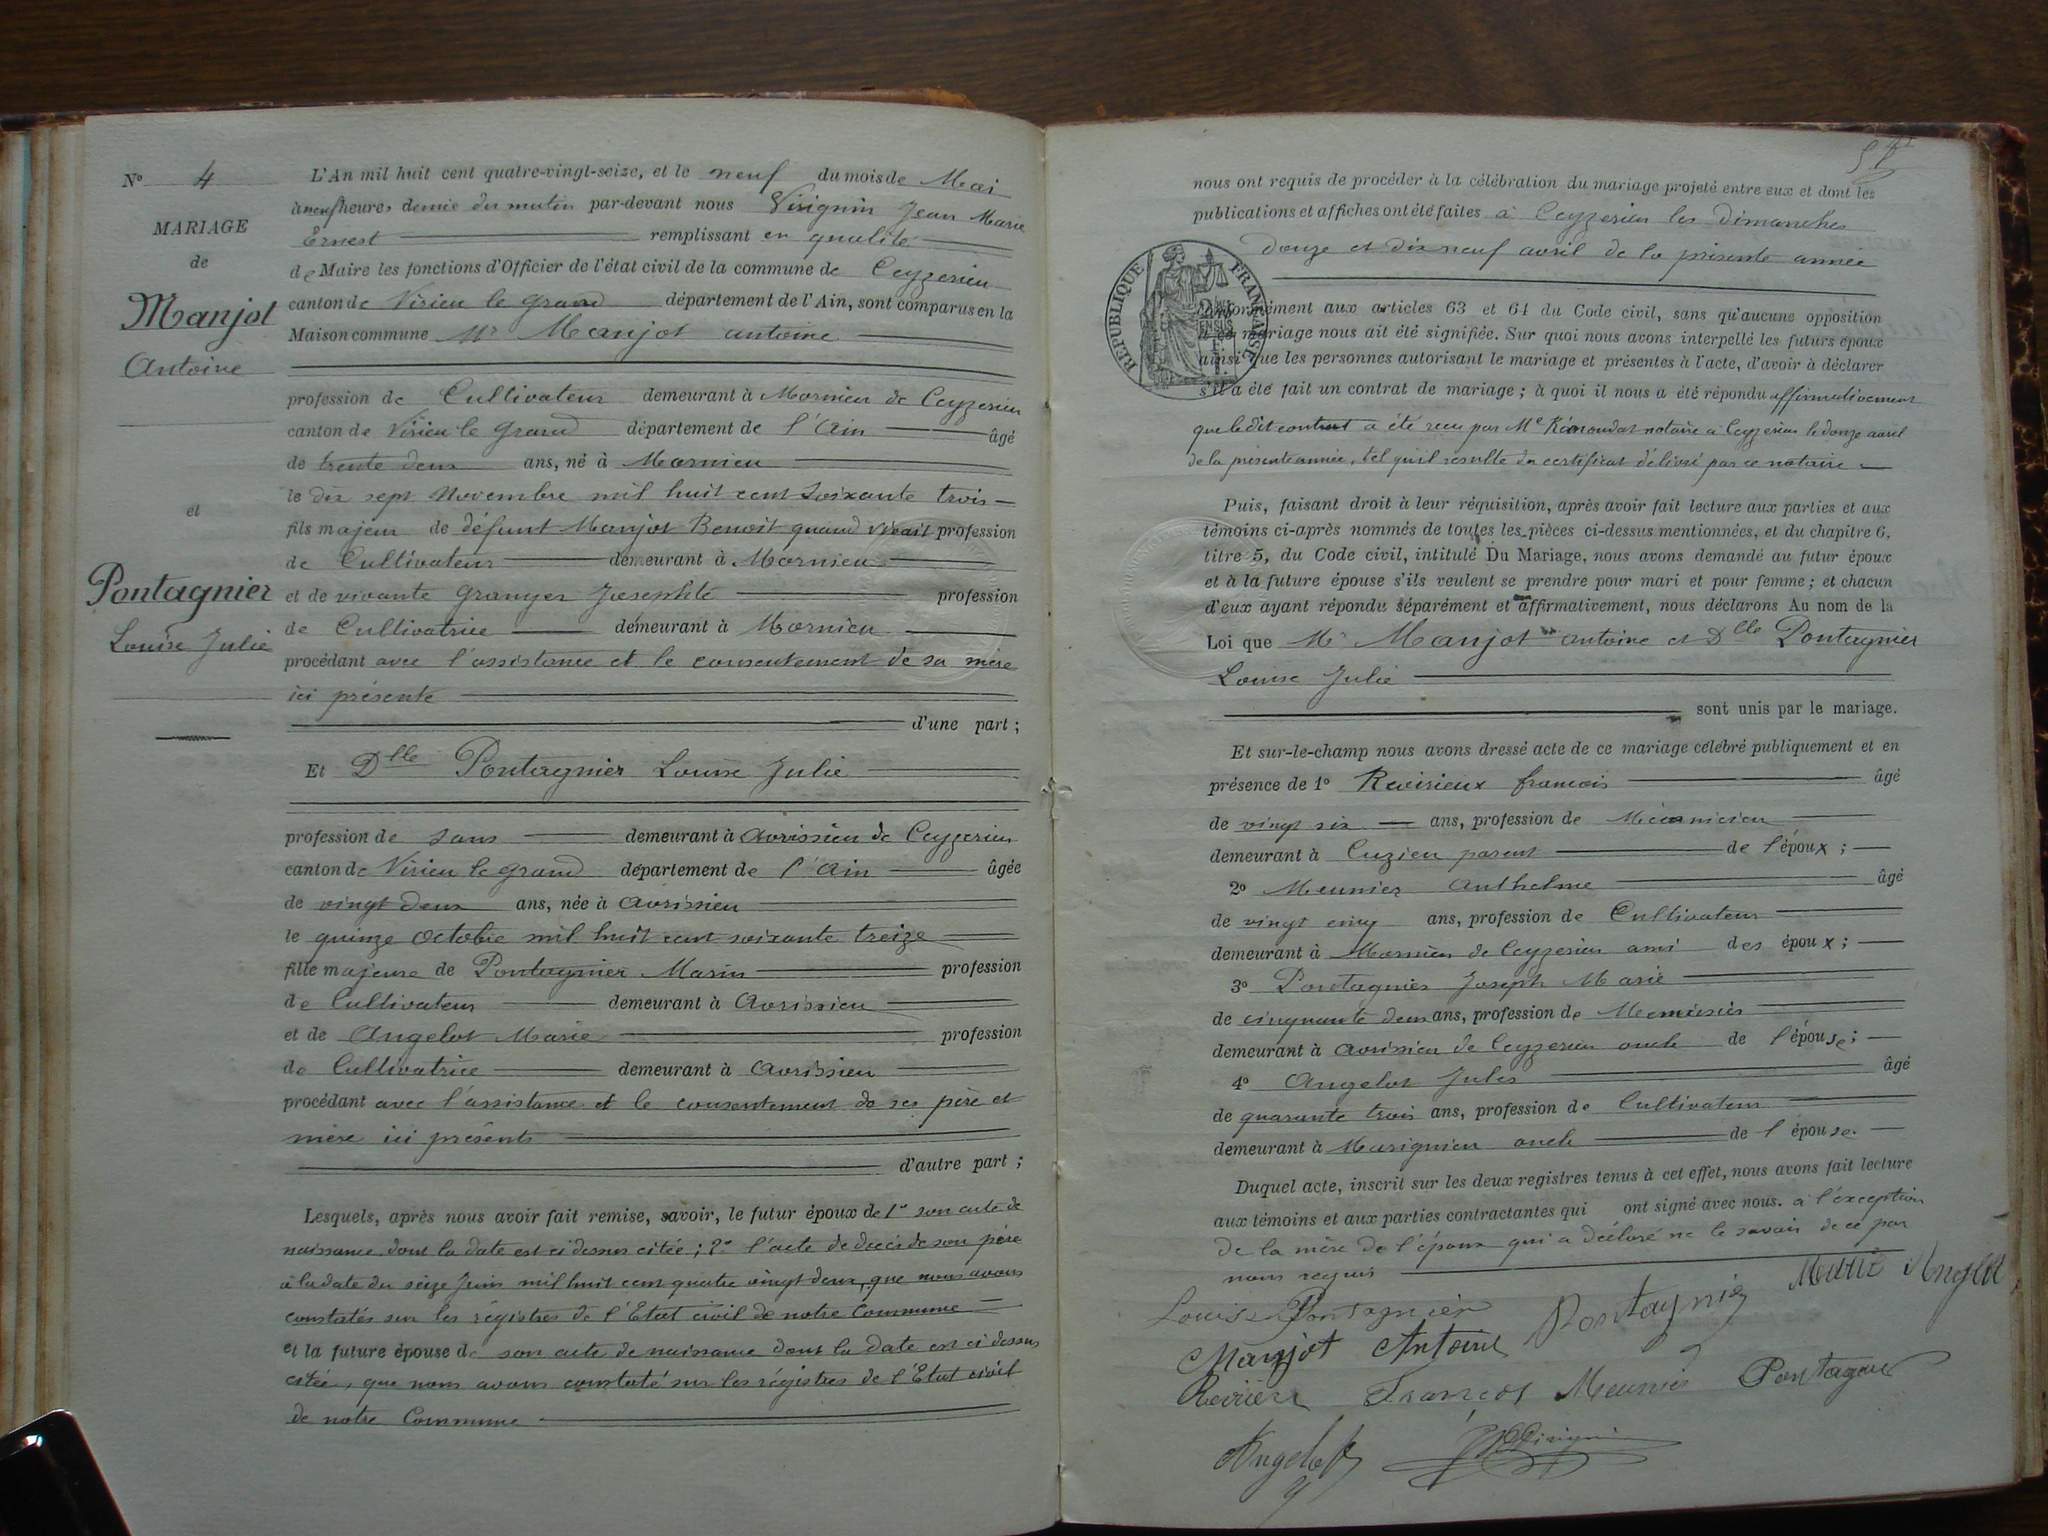 N° 4
MARIAGE
de
Manjot
Antoine
et
Pontagnier
Louise Julie
L'An mil huit cent quatre-vingt-seize, et le neuf du mois de Mai
à neuf heures demie du matin par-devant nous Virignin Jean Marie
Ernest remplissant en qualité
de Maire les fonctions d'Officier de l'état civil de la commune de Ceyzerieu
canton de Virieu le grand département de l'Ain, sont comparus en la
Maison commune Mr Manjot antoine
profession de Cultivateur demeurant à Mornieu de Ceyzerieu
canton de Virieu le Grand département de l'Ain âgé
de trente deux ans, né à Mornieu
le dix sept Novembre mil huit cent soixante trois
fils majeur de défunt Manjot Benoit quand vivait profession
de Cultivateur demeurant à Mornieu
et de vivante Granger Josephte profession
de Cultivatrice demeurant à Mornieu
procédant avec l'assistance et le consentement de sa mère
ici présente
d'une part ;
Et Dlle Pontagnier Louise Julie
profession de sans demeurant à Avrissieu de Ceyzerieu
canton de Virieu le grand département de l'Ain âgée
de vingt deux ans, née à Avrissieu
le quinze Octobre mil huit cent soixante treize
fille majeure de Pontagnier Marin profession
de Cultivateur demeurant à Avrissieu
et de Angelot Marie profession
de Cultivatrice demeurant à Avrissieu
procédant avec l'assistance et le consentement de ses père et
mère ici présents
d'autre part ;
Lesquels, après nous avoir fait remise, savoir, le futur époux de 1° son acte de
naissance dont la date est ci dessus citée ; 2° l'acte de décès de son père
à la date du seize Juin mil huit cent quatre vingt deux, que nous avons
constatés sur les régistres de l'Etat civil de notre Commune
et la future épouse de son acte de naissance dont la date est ci dessus
citée, que nous avons constaté sur les régistres de l'Etat civil
de notre Commune
nous ont requis de procéder à la célébration du mariage projeté entre eux et dont les
publications et affiches ont été faites à Ceyzerieu les dimanches
douze et dix neuf avril de la présente année
RÉPUBLIQUE FRANÇAISE
conformément aux articles 63 et 64 du Code civil, sans qu'aucune opposition
à ce mariage nous ait été signifiée. Sur quoi nous avons interpellé les futurs époux
ainsi que les personnes autorisant le mariage et présentes à l'acte, d'avoir à déclarer
s'il a été fait un contrat de mariage ; à quoi il nous a été répondu affirmativement
que le dit contrat a été reçu par Me notaire à Ceyzerieu le douze avril
de la présente année, tel qu'il resulte du certificat délivré par ce notaire
Puis, faisant droit à leur réquisition, après avoir fait lecture aux parties et aux
témoins ci-après nommés de toutes les pièces ci-dessus mentionnées, et du chapitre 6,
titre 5, du Code civil, intitulé Du Mariage, nous avons demandé au futur époux
et à la future épouse s'ils veulent se prendre pour mari et pour femme ; et chacun
d'eux ayant répondu séparément et affirmativement, nous déclarons Au nom de la
Loi que Mr Manjot antoine et Dlle Pontagnier
Louise Julie
sont unis par le mariage.
Et sur-le-champ nous avons dressé acte de ce mariage célébré publiquement et en
présence de 1° Revirieux francois âgé
de vingt six ans, profession de Mécanicien
demeurant à Cuzieu parent de l'époux ;
2° Meunier Anthelme âgé
de vingt cinq ans, profession de Cultivateur
demeurant à Mornieu de Ceyzerieu ami des époux ;
3° Pontagnier Joseph Marie
de cinquante deux ans, profession de Menuisier
demeurant à Avrissieu de Ceyzerieu oncle de l'épouse ;
4° Angelot Jules âgé
de quarante trois ans, profession de Cultivateur
demeurant à Marignieu oncle de l'épouse.
Duquel acte, inscrit sur les deux registres tenus à cet effet, nous avons fait lecture
aux témoins et aux parties contractantes qui ont signé avec nous. à l'exception
de la mère de l'époux qui a déclaré ne le savoir de ce par
nous requis
Louise Pontagnier Pontagnier Marie Angelot
Manjot Antoine
François Meunier Pontagnier
Angelot J